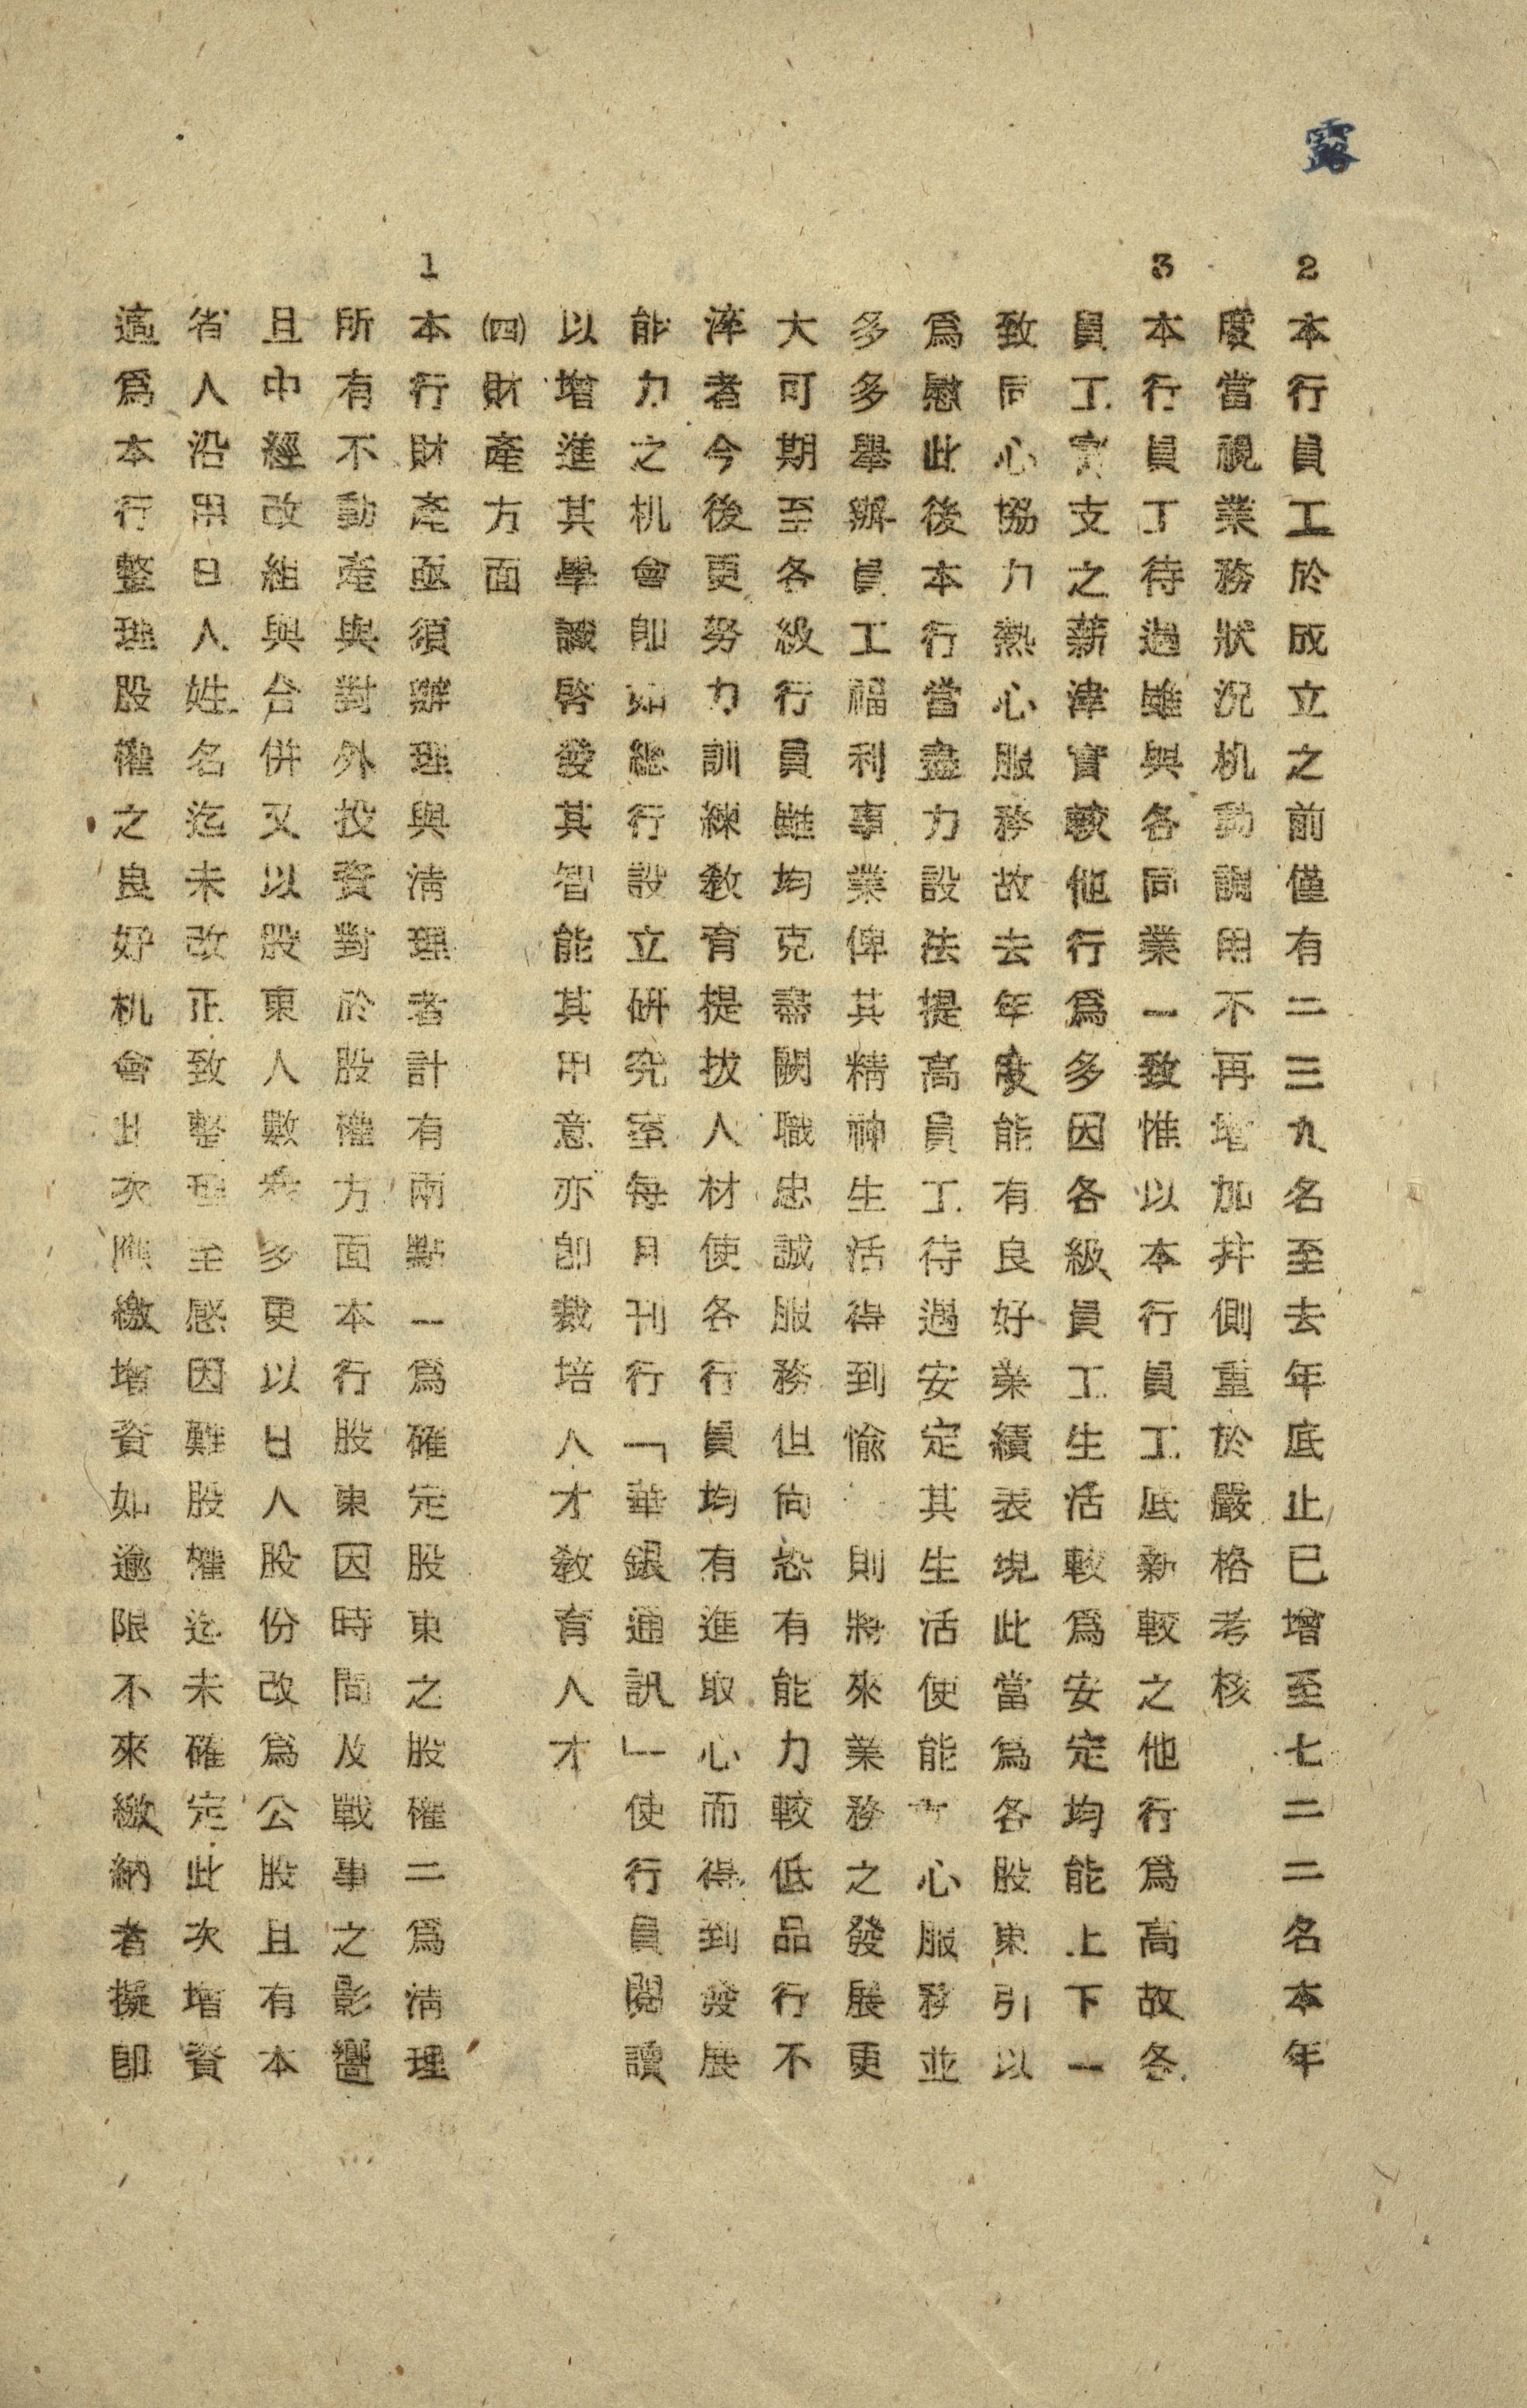 露
2 本行員工於成立之前僅有二三九名至去年底止已增至七二二名本年
度當視業務狀況机動調用不再增加并側重於嚴格考核
3 本行員工待遇雖與各同業一致惟以本行員工底薪較之他行爲高故各
員工實支之薪津實較他行爲多因各級員工生活較爲安定均能上下一
致同心協力熱心服務故去年度能有良好業績表現此當爲各股東引以
爲慰此後本行當盡力設法提高員工待遇安定其生活使能 心服務並
多多舉辦員工福利事業俾其精神生活得到愉 則將來業務之發展更
大可期至各級行員雖均克盡闕職忠誠服務但尚恐有能力較低品行不
淬者今後更努力訓練教育提拔人材使各行員均有進取心而得到發展
能力之机會卽如總行設立研究室每月刊行「華銀通訊」使行員閱讀
以增進其學識啓發其智能其用意亦卽栽培人才教育人才
㈣財產方面
1 本行財產亟須辦理與淸理者計有兩點一爲確定股東之股權二爲淸理
所有不動產與對外投資對於股權方面本行股東因時間及戰事之影響
且中經改組與合併又以股東人數衆多更以日人股份改爲公股且有本
省人沿用日人姓名迄未改正致整理至感困難股權迄未確定此次增資
適爲本行整理股權之良好机會此次應繳增資如逾限不來繳納者擬卽